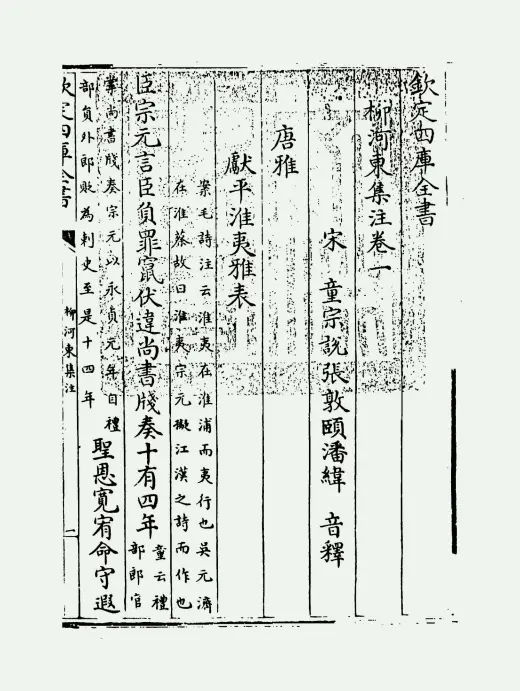 欽定四庫全書
柳河東集注卷一
宋 童宗説張敦頤潘緯 音釋
唐雅
獻平淮夷雅表
案毛詩注云淮夷在淮浦而夷行也吳元濟
在淮蔡故曰淮夷宗元擬江漢之詩而作也
臣宗元言臣負罪竄伏違尚書牋奏十有四年
童云禮
部郎官
掌尚書牋奏宗元以永貞元年自禮
部員外郎貶為刺史至是十四年
聖恩寬宥命守遐
欽定四庫全書
柳河東集注
一